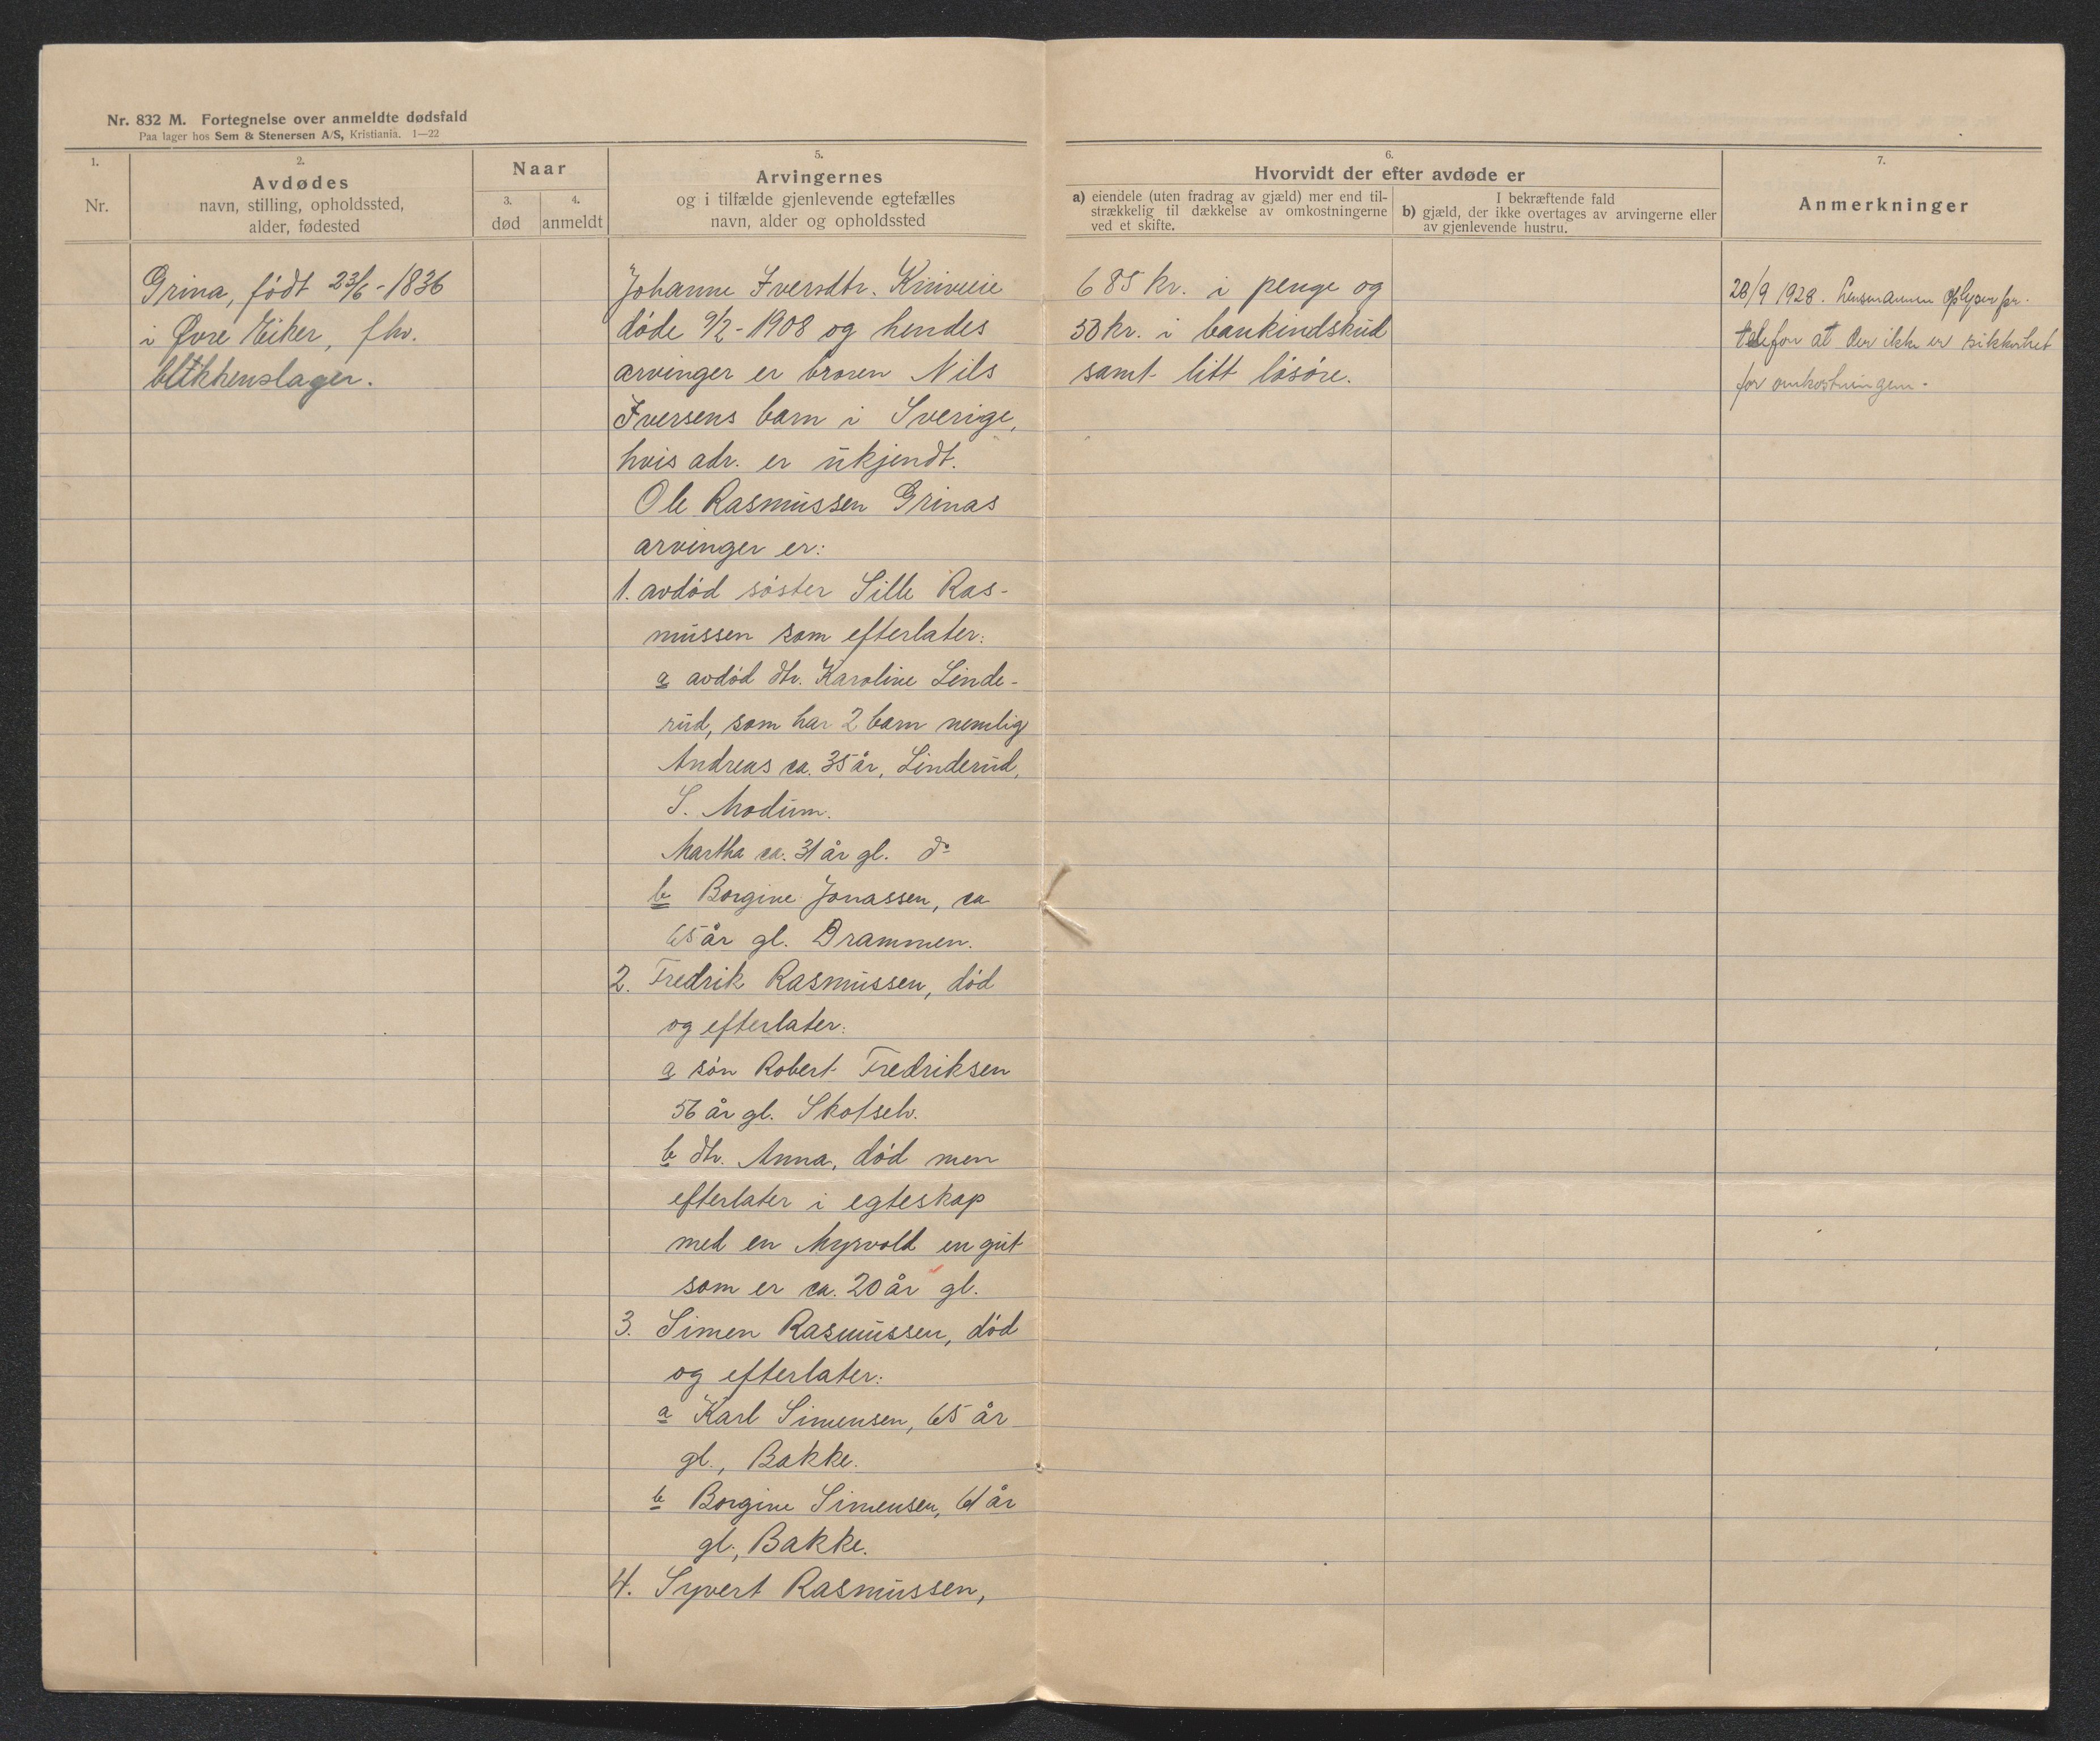 Nr. 832 M. Fortegnelse over anmeldte dødsfald
Paa lager hos Sem & Stenersen A/S, Kristiania. 1—22
1.
Nr.
2.
Avdødes
navn, stilling, opholdssted,
alder, fødested
Naar
3.
død
4.
anmeldt
5.
Arvingernes
og i tilfælde gjenlevende egtefælles
navn, alder og opholdssted
6.
Hvorvidt der efter avdøde er
a) eiendele (uten fradrag av gjæld) mer end til-
strækkelig til dækkelse av omkostningerne
ved et skifte.
I bekræftende fald
b) gjæld, der ikke overtages av arvingerne eller
av gjenlevende hustru.
7.
Anmerkninger
Grina, født 23/6-1836
i Øvre Eiker, fhv.
blikkenslager.
Johanne Iversdtr.
døde 9/2-1908 og hendes
arvinger er broren Nils
Iversens barn i Sverige,
hvis adr. er ukjendt.
Ole Rasmussen Grinas
arvinger er:
1. avdød søster Sille Ras-
mussen som efterlater:
a avdød dtr. Karoline Linde-
rud, som har 2 barn nemlig
Andreas ca. 35 år, Linderud,
S. Modum.
Martha ca. 31 år gl. do
b Borgine Jonassen, ca
65 år gl. Drammen.
2. Fredrik Rasmussen, død
og efterlater:
a søn Robert Fredriksen
56 år gl. Skotselv.
b dtr. Anna, død men
efterlater i egteskap
med en Myrvold en gut
som er ca. 20 år gl.
3. Simen Rasmussen, død
og efterlater:
a Karl Simensen, 65 år
gl., Bakke.
b Borgine Simensen, 61 år
gl., Bakke.
4. Syvert Rasmussen,
685 kr. i penge og
50 kr. i bankindskud
samt litt løsøre.
28/9 1928. Lensmannen oplyser pr.
telefon at der ikke er sikkerhet
for omkostningen.